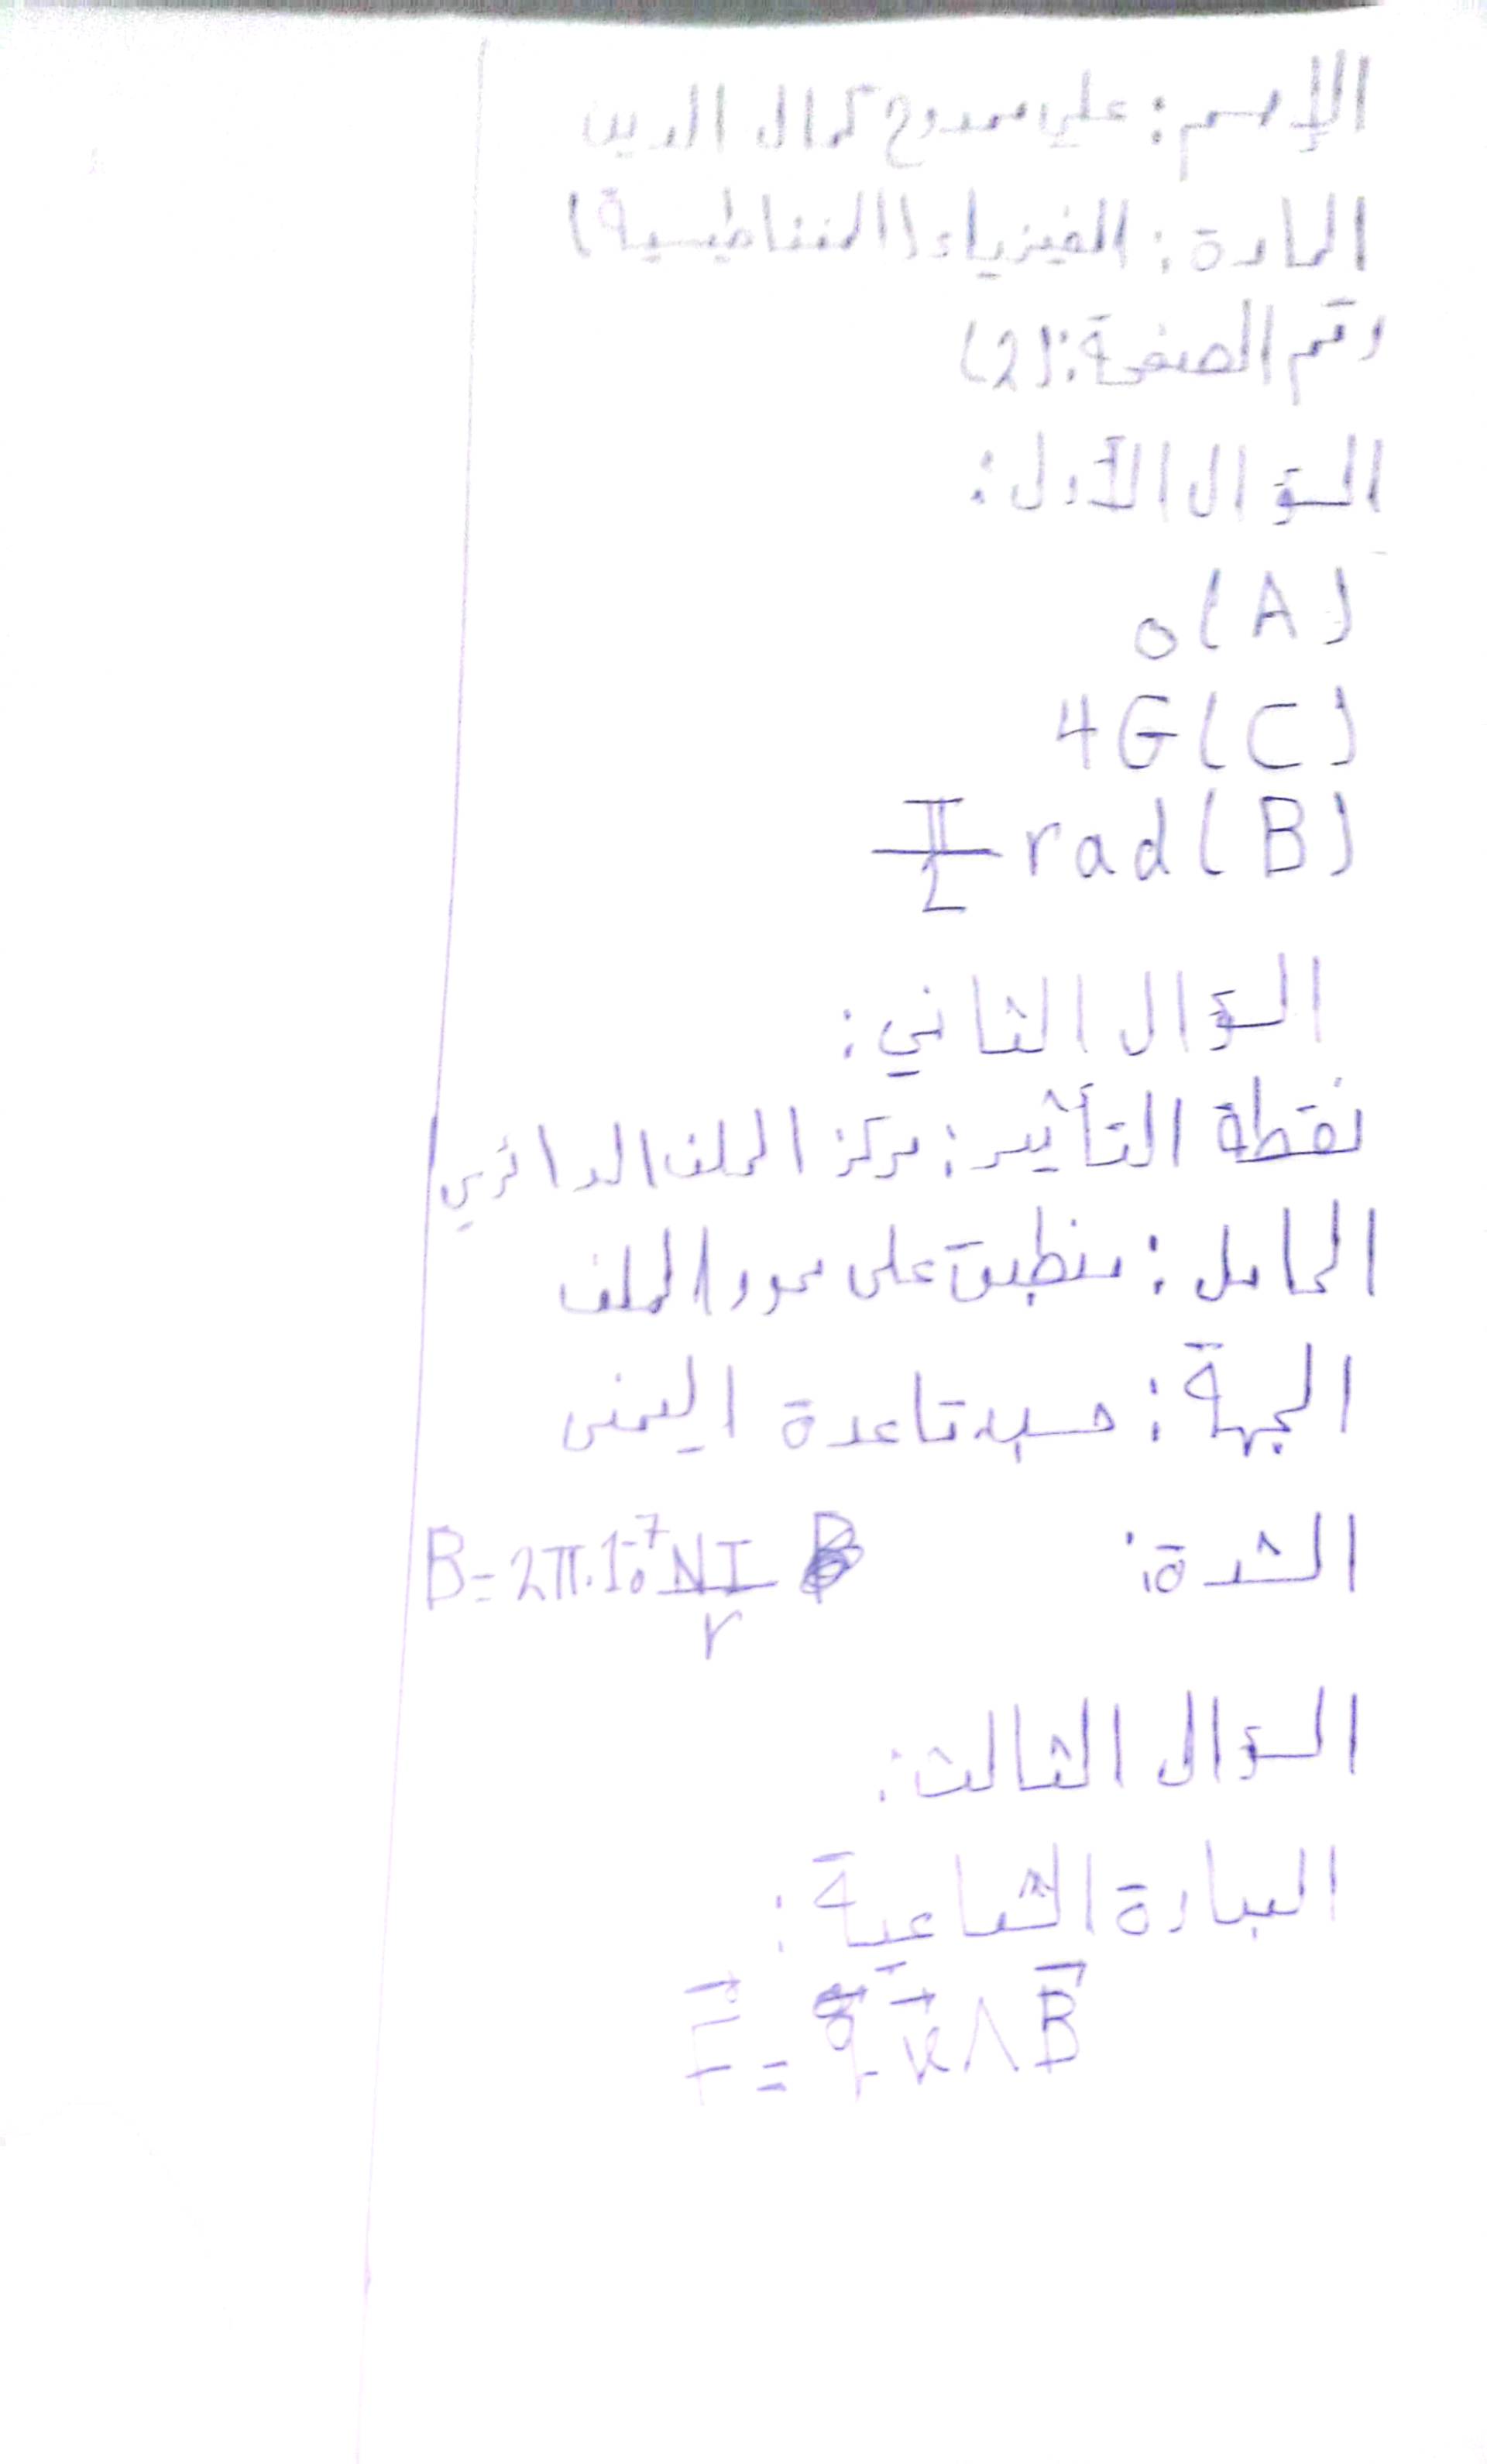 الإسم: علي ممدوح كمال الدين
المادة: الفيزياء (المغناطيسية)
رقم الصفحة: (2)
السؤال الأول:
0 (A)
4G (C)
π/2 rad (B)
السؤال الثاني:
نقطة التأثير: مركز الملف الدائري
الحامل: منطبق على محور الملف
الجهة: حسب قاعدة اليمنى
الشدة: B = 2π.10⁻⁷ NI/r
السؤال الثالث:
العبارة الشعاعية:
F⃗ = q v⃗ Λ B⃗